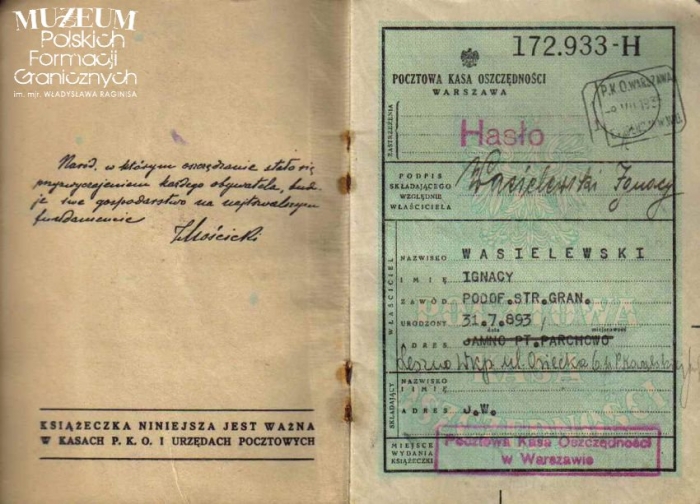 MUZEUM
Polskich
Formacji
Granicznych
im. mjr. WŁADYSŁAWA RAGINISA
Naród, w którym oszczędzanie stało się
przyzwyczajeniem każdego obywatela, budu-
je swe gospodarstwo na najtrwalszym
fundamencie
IMościcki
KSIĄŻECZKA NINIEJSZA JEST WAŻNA
W KASACH P. K. O. I URZĘDACH POCZTOWYCH
172.933-H
POCZTOWA KASA OSZCZĘDNOŚCI
WARSZAWA
P.K.O. WARSZAWA
ZASTRZEŻENIA
Hasło
PODPIS
SKŁADAJĄCEGO
WZGLĘDNIE
WŁAŚCICIELA
Wasielewski Ignacy
WŁAŚCICIEL
NAZWISKO WASIELEWSKI
IMIĘ IGNACY
ZAWÓD PODOF.STR.GRAN.
URODZONY 31.7.893,
data miejscowość
ADRES JAMNO PT. PARCHOWO
Leszno Wlkp. ul. Osiecka 6
SKŁADAJĄCY
NAZWISKO
IMIĘ
ADRES J.W.
MIEJSCE
WYDANIA
KSIĄŻECZKI
Pocztowa Kasa Oszczędności
w Warszawie